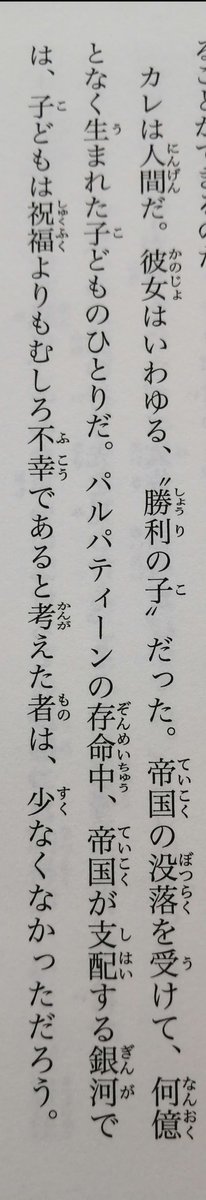 ることができるのだ
カレは人間だ。彼女はいわゆる、〝勝利の子〟だった。帝国の没落を受けて、何億
となく生まれた子どものひとりだ。パルパティーンの存命中、帝国が支配する銀河で
は、子どもは祝福よりもむしろ不幸であると考えた者は、少なくなかっただろう。